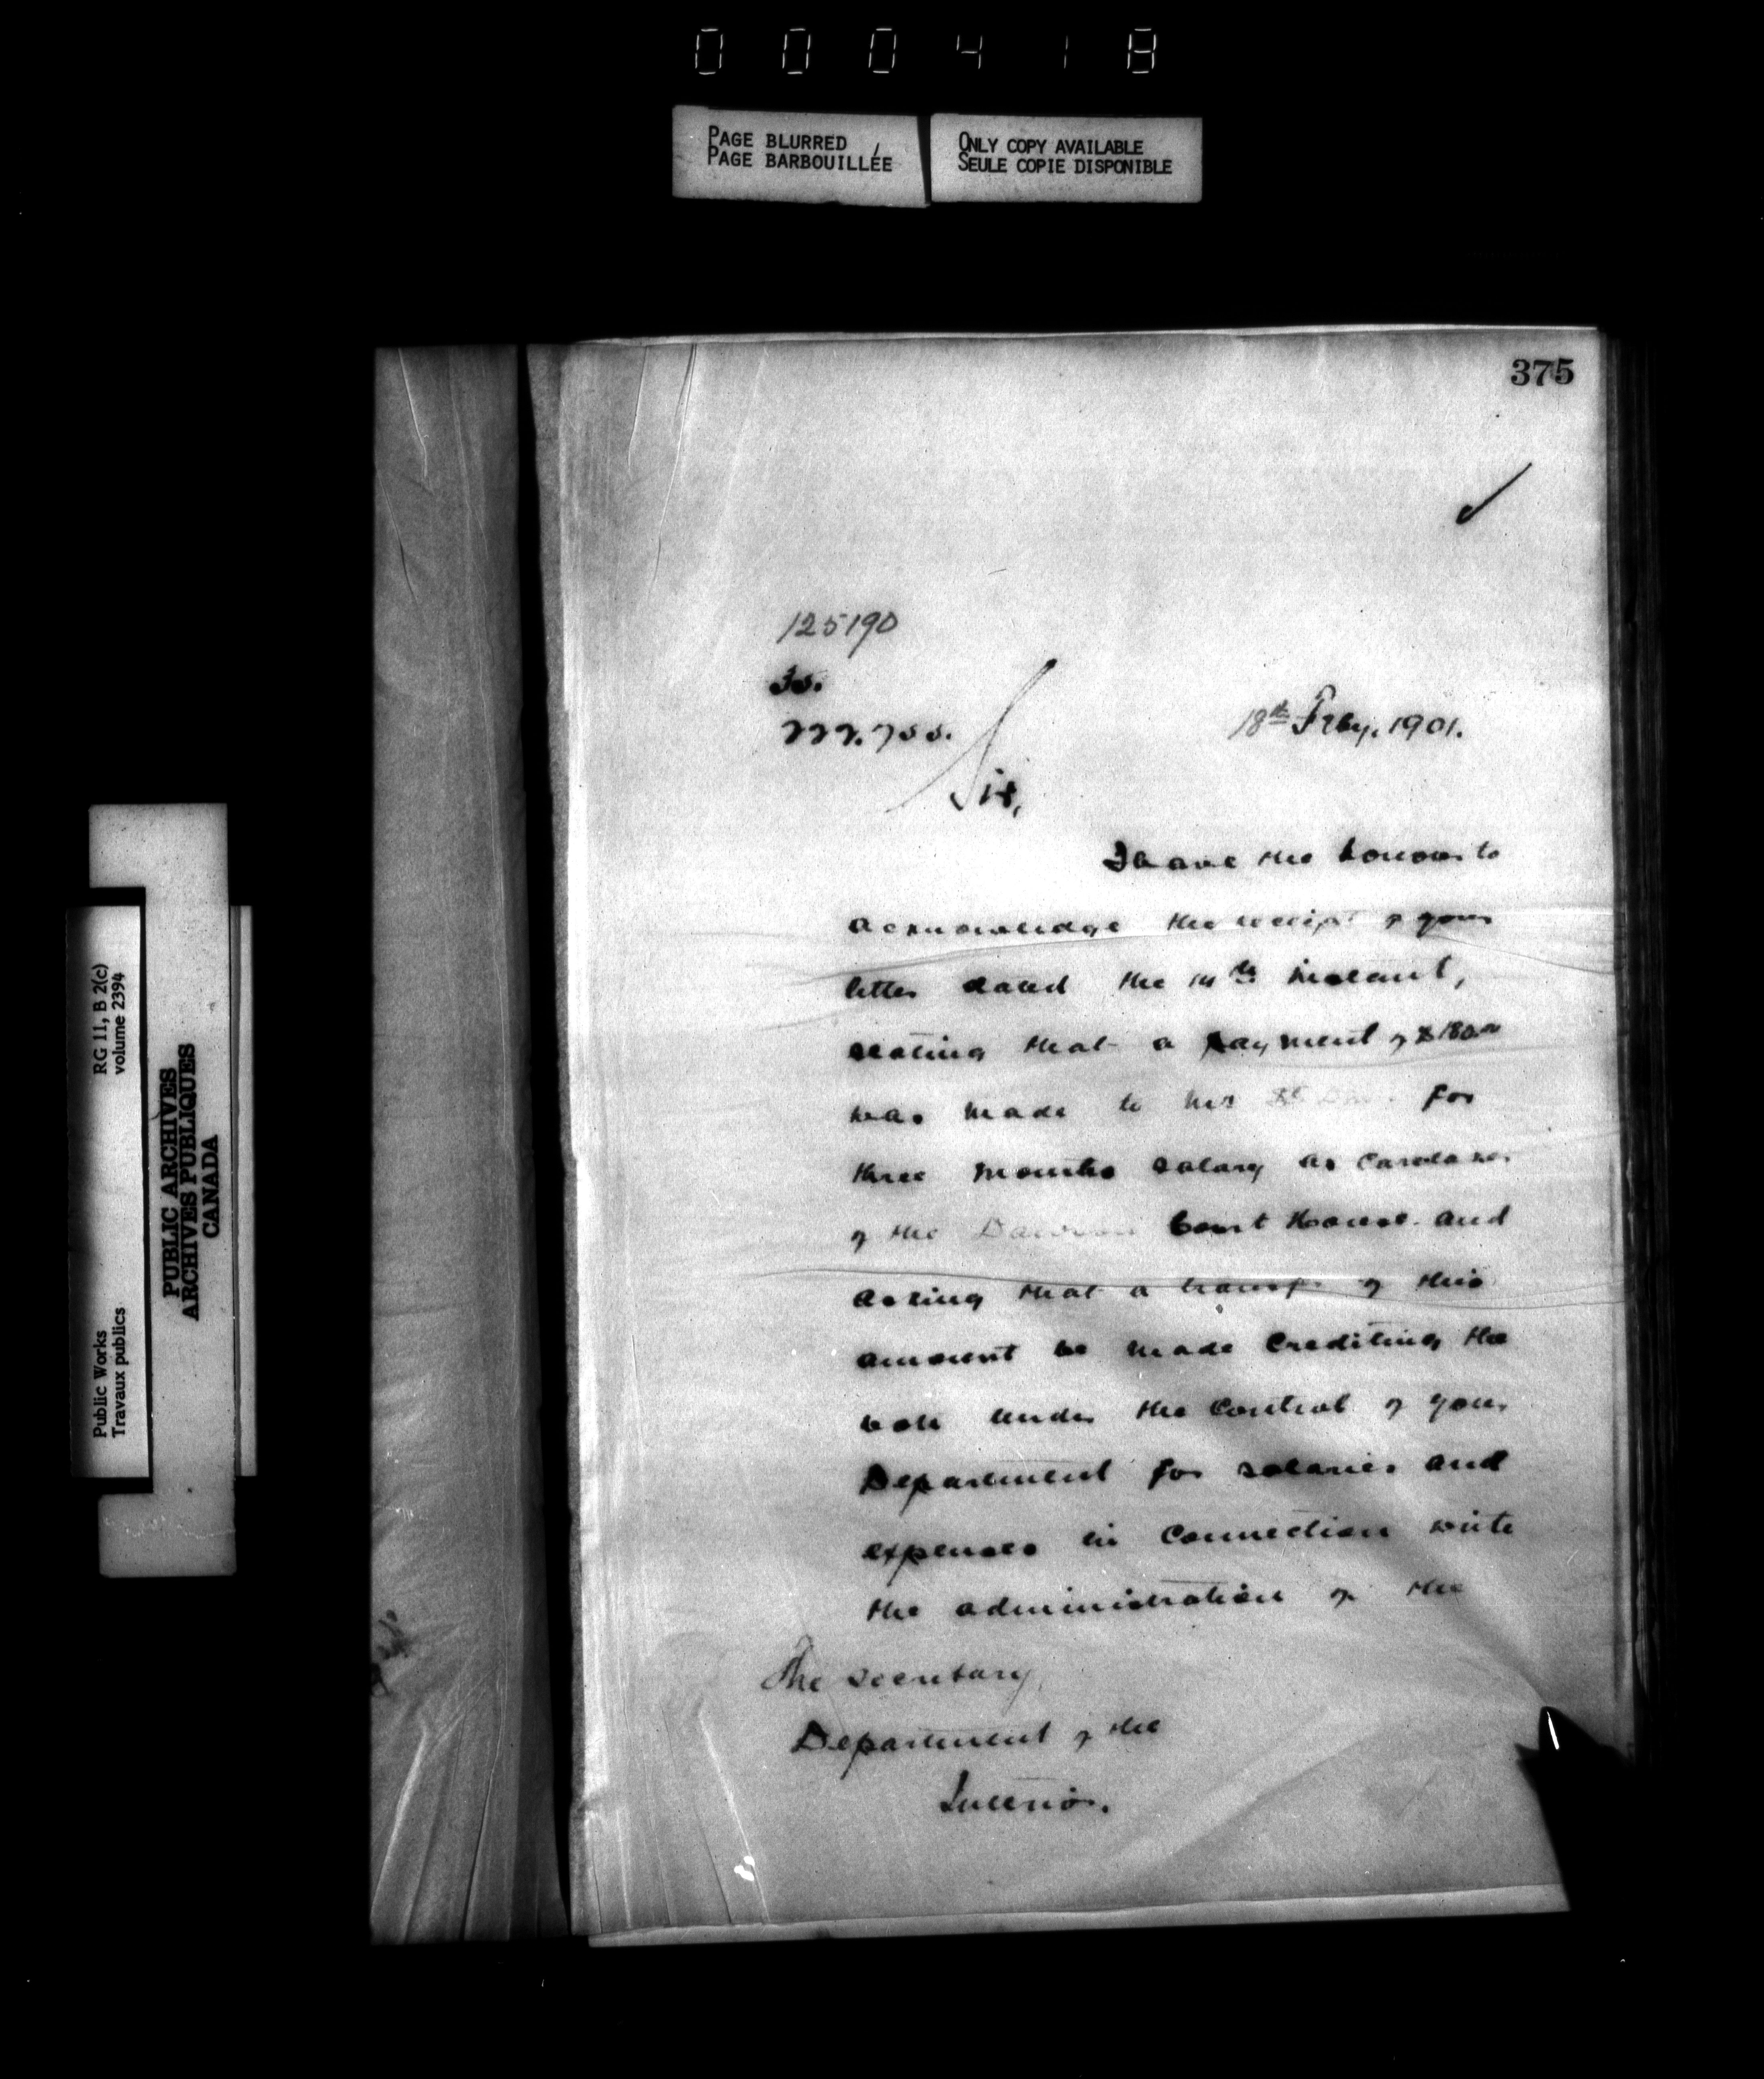 000418
PAGE BLURRED
PAGE BARBOUILLÉE
ONLY COPY AVAILABLE
SEULE COPIE DISPONIBLE
375
125190
18th Feby. 1901.
Sir,
I have the honour to
acknowledge the receipt of your
letter dated the 14th instant,
stating that a payment of $180
was made to for
three months salary as Caretaker
of the Dawson Court House and
asking that a transfer of this
amount be made Crediting the
vote under the Control of your
Department for salaries and
expenses in Connection with
the administration of the
The Secretary,
Department of the
Interior.
RG 11, B 2(c)
volume 2394
Public Works
Travaux publics
PUBLIC ARCHIVES
ARCHIVES PUBLIQUES
CANADA